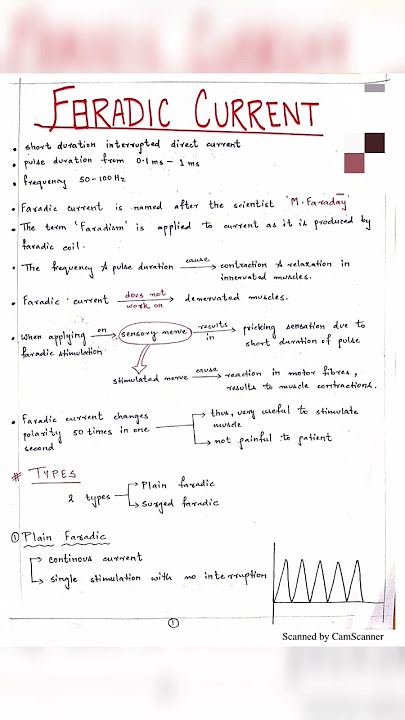 FARADIC CURRENT
• short duration interrupted direct current
• pulse duration from 0.1 ms - 1 ms
• frequency 50-100 Hz
• Faradic current is named after the scientist 'M. Faraday'
• The term 'Faradism' is applied to current as it is produced by
faradic coil.
• The frequency & pulse duration cause → contraction & relaxation in
innervated muscles.
• Faradic current does not work on → denervated muscles.
• When applying on → sensory nerve results in → pricking sensation due to
faradic stimulation short duration of pulse
stimulated nerve cause → reaction in motor fibres,
results to muscle contractions.
• Faradic current changes → thus, very useful to stimulate
polarity 50 times in one muscle
second → not painful to patient
# TYPES
2 types → Plain faradic
→ Surged faradic
① Plain Faradic
→ continous current
→ single stimulation with no interruption
①
Scanned by CamScanner